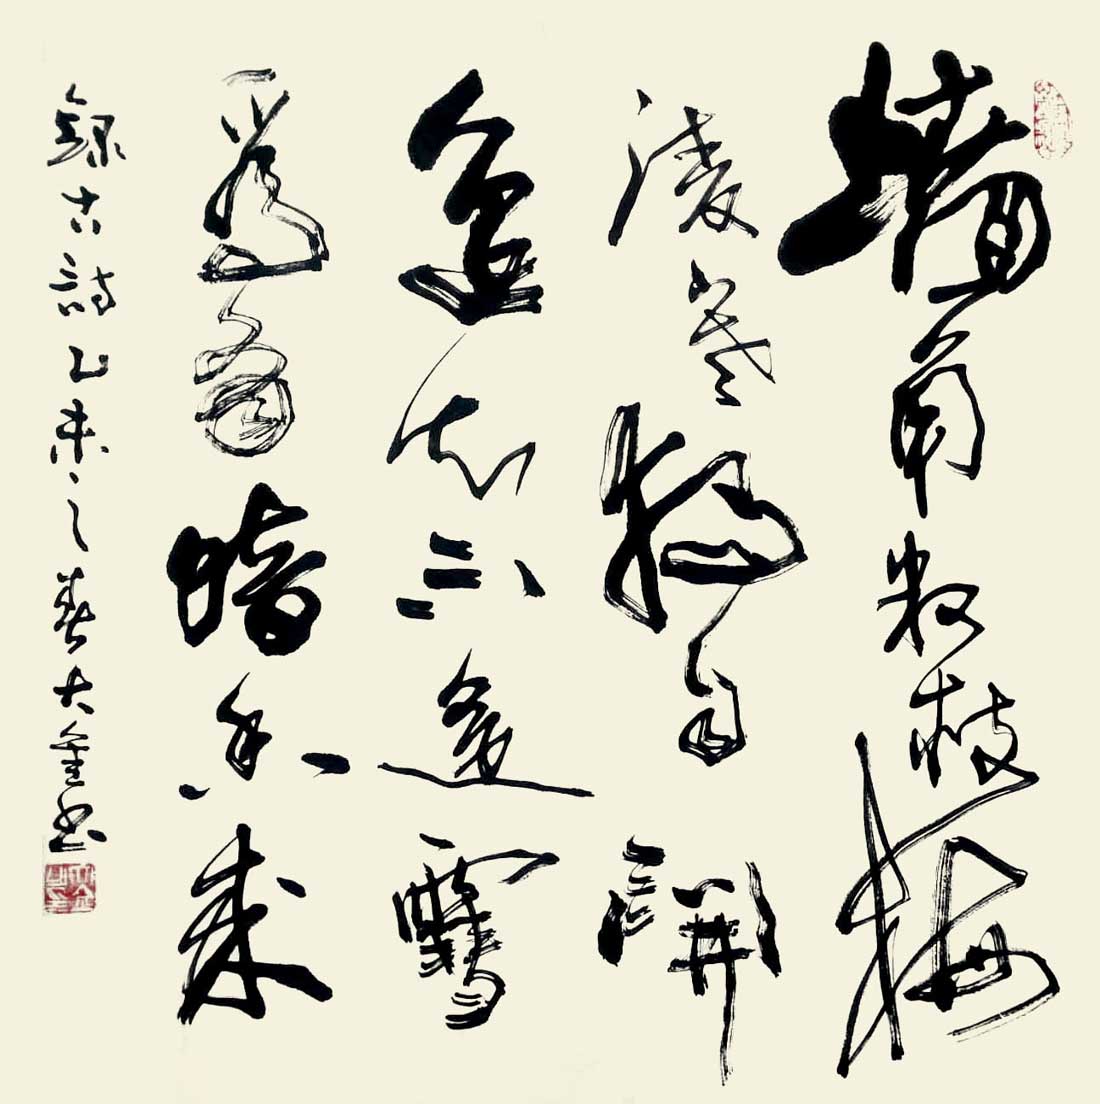 墙角数枝梅
凌寒独自開
遥知不是雪
为有暗香来
録古詩乙未之春大金书